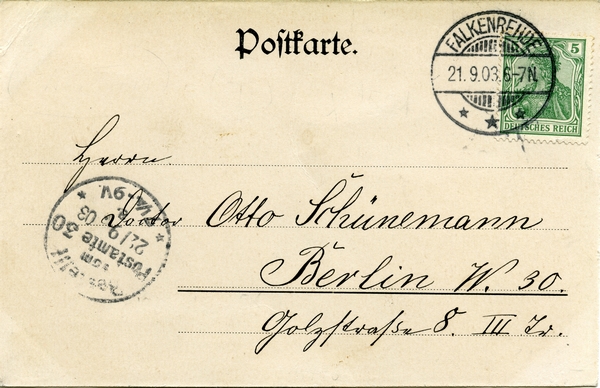 Postkarte.
FALKENREHDE
21.9.03.6-7N.
5
DEUTSCHES REICH
Herrn
Doctor Otto Schünemann
Berlin W. 30.
Golzstraße 8. III Tr.
Bestellt
vom
Postamte 30
22/9 03
7¼-9V.